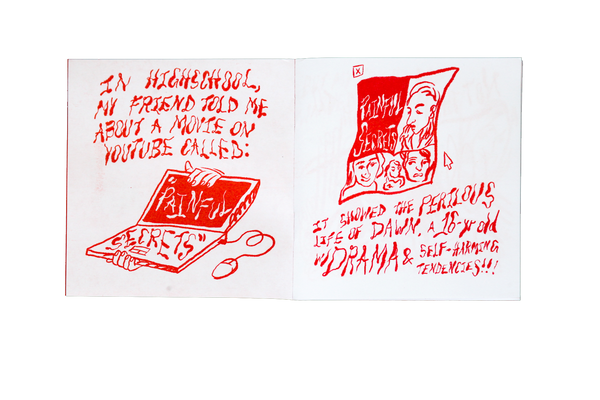 IN HIGHSCHOOL,
MY FRIEND TOLD ME
ABOUT A MOVIE ON
YOUTUBE CALLED:
"PAINFUL
SECRETS"
X
PAINFUL
SECRETS
IT SHOWED THE PERILOUS
LIFE OF DAWN, A 18-yr old
W DRAMA & SELF-HARMING
TENDENCIES!!!